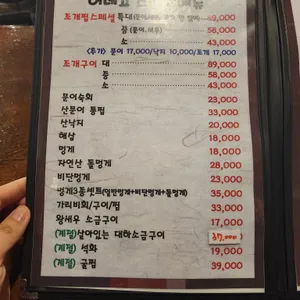 조개찜스페셜 특대 69,000
중 (문어,새우) 58,000
소 43,000
(추가) 문어 17,000/낙지 10,000/조개 17,000
조개구이 대 89,000
중 58,000
소 43,000
문어숙회 23,000
산문어 통찜 33,000
산낙지 20,000
해삼 18,000
멍게 18,000
자연산 돌멍게 28,000
비단멍게 23,000
멍게3종세트(일반멍게+비단멍게+돌멍게) 35,000
가리비회/구이/찜 33,000
왕새우 소금구이 17,000
(계절)살아있는 대하소금구이 37,000
(계절) 석화 19,000
(계절) 굴찜 39,000